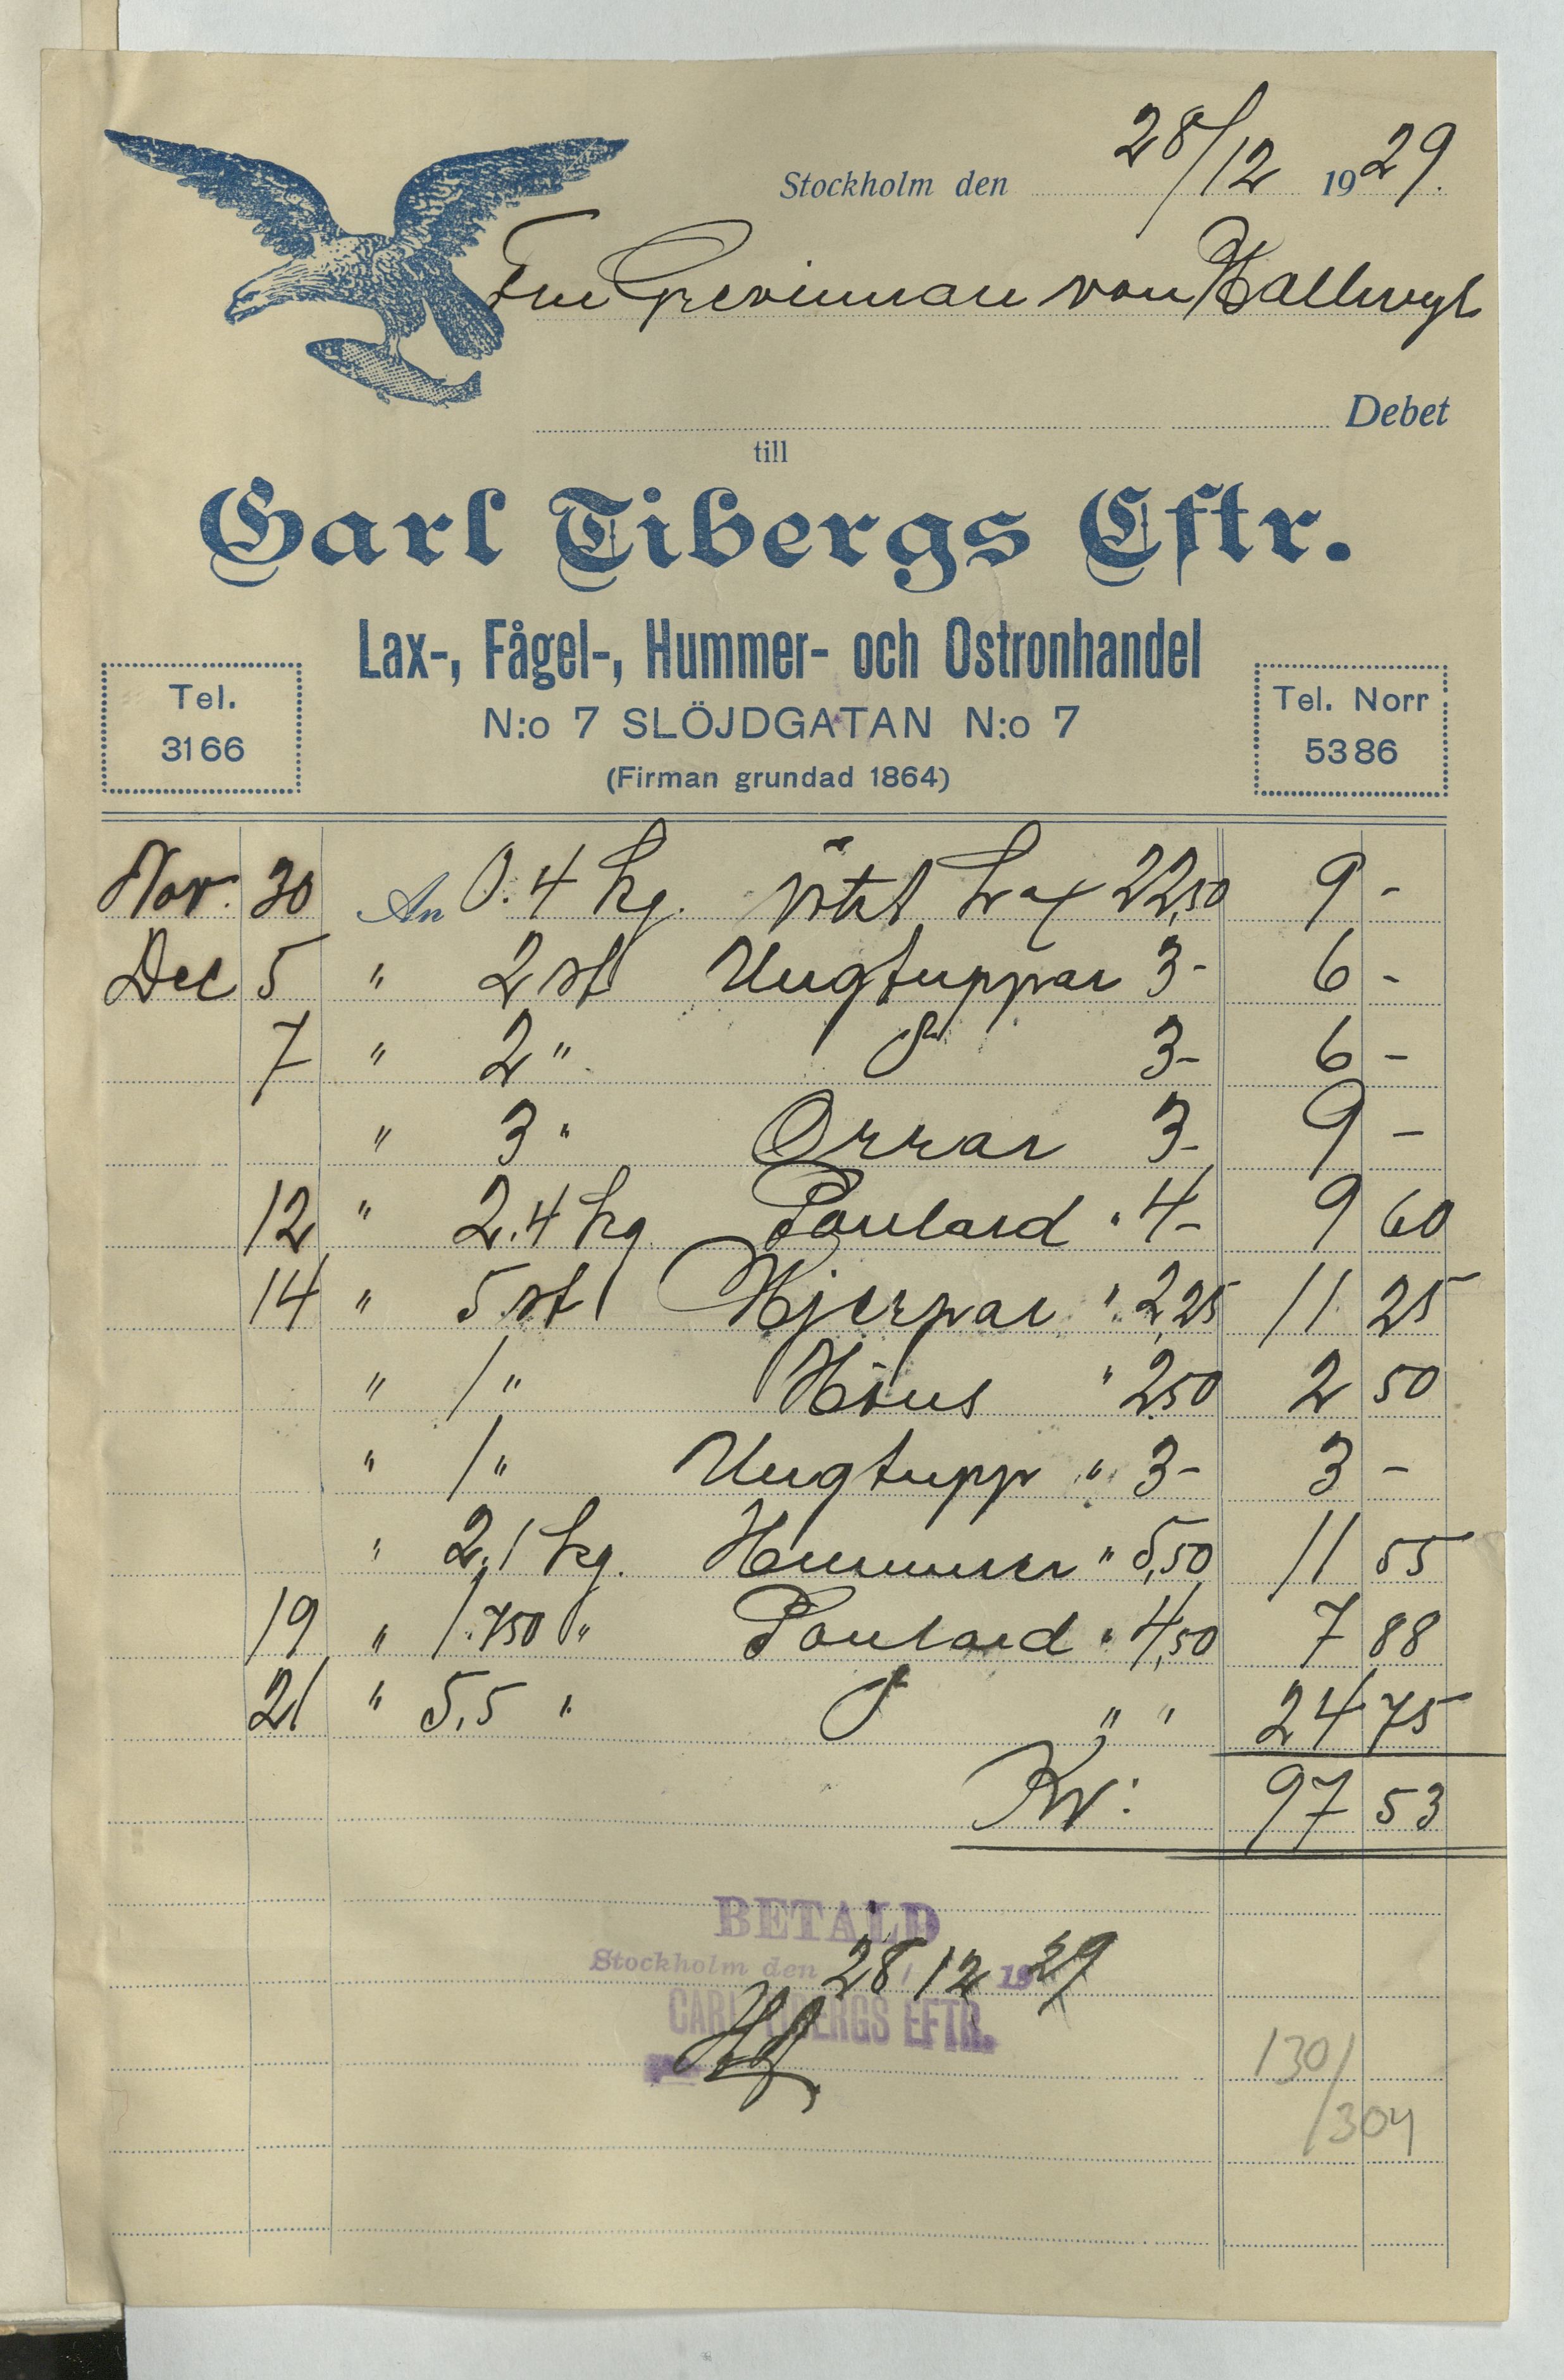 Stockholm den 28/12 1929.
Fru Grevinnan von Hallwyl
Debet
till
Carl Tibergs Eftr.
Lax-, Fågel-, Hummer- och Ostronhandel
Tel. 3166
N:o 7 SLÖJDGATAN N:o 7
Tel. Norr 5386
(Firman grundad 1864)
Nov. 30 An 0.4 kg. rökt Lax 22,50 9 -
Dec 5 " 2 st Ungtuppar 3- 6 -
7 " 2 " 3- 6 -
" 3 " Orrar 3- 9 -
12 " 2.4 kg Poulard " 4- 9 60
14 " 5 st Hjerpar " 2,25 11 25
" 1 " Höns " 2,50 2 50
" 1 " Ungtupp " 3- 3 -
" 2.1 kg. Hummer " 5,50 11 55
19 " 1.750 " Poulard " 4,50 7 88
21 " 5,5 " " " 24 75
Kr: 97 53
BETALD
Stockholm den 28/12 1929
CARL TIBERGS EFTR.
130/
/304